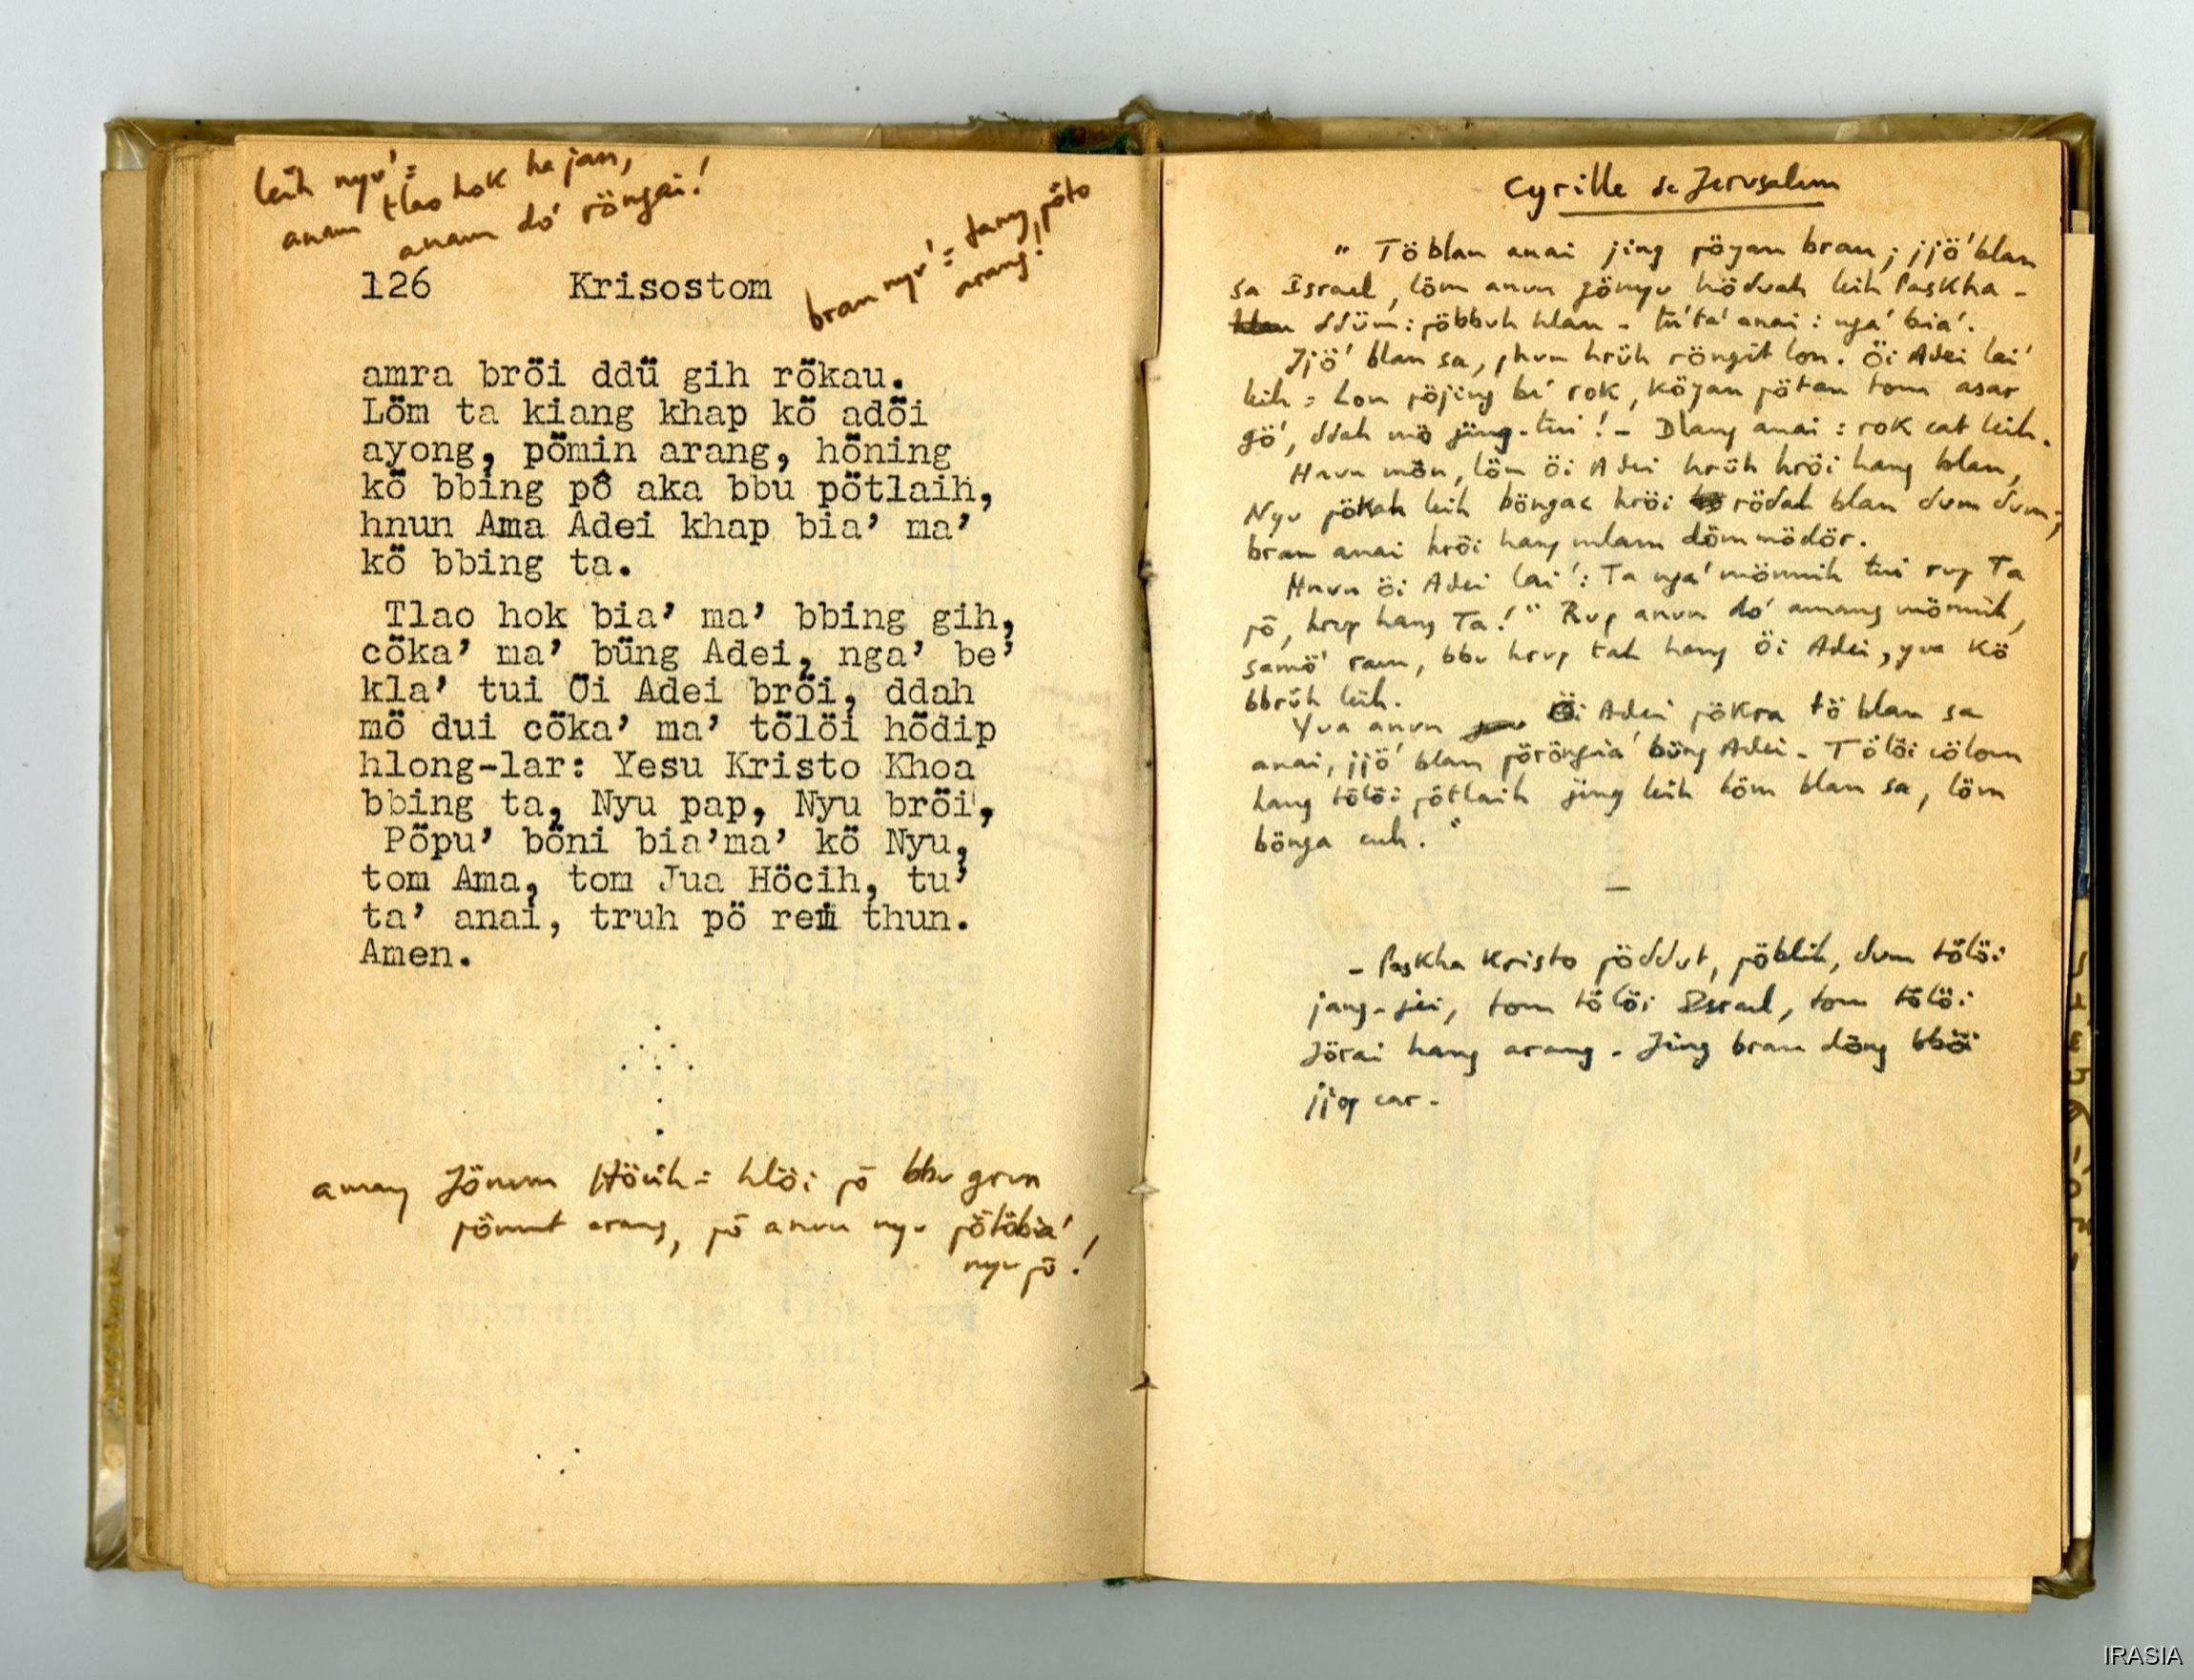 leih nyu' =
anam tlao hok ha jan,
anam do' röngai!
bran nyu' = jang, pöto
arang!
126 Krisostom
amra bröi ddü gih rökau.
Löm ta kiang khap kö adöi
ayong, pömin arang, höning
kö bbing pô aka bbu pötlaih,
hnun Ama Adei khap bia' ma'
kö bbing ta.
Tlao hok bia' ma' bbing gih,
cöka' ma' büng Adei, nga' be'
kla' tui Öi Adei bröi, ddah
mö dui cöka' ma' tölöi hödip
hlong-lar: Yesu Kristo Khoa
bbing ta, Nyu pap, Nyu bröi,
Pöpu' böni bia'ma' kö Nyu,
tom Ama, tom Jua Höcih, tu'
ta' anai, truh pö rem thun.
Amen.
amang Jönum Höcih = hlöi pö bbu grun
pömut arang, pö anun nyu pötöbia',
nyu pö!
Cyrille de Jerusalem
" Töblan anai jing pöyan bran ; jjö' blan
sa Israel, löm anun gönyu höduah leih Paskha -
ddüm : pöbbuh hlan - tu' ta' anai : nga' bia'.
Jjö' blan sa, phun hrüh röngit lon. Öi Adei lai'
leih = Lon pöjing be' rok, köyan pötan tom asar
gö', ddah mö jing-tui ! - Dlang anai : rok cat leih.
Hnun mön, löm Öi Adei hrüh hröi hang blan,
Nyu pökah leih böngac hröi rödah blan dum dum ;
bran anai hröi hang mlam döm mödör.
Hnun öi Adei lai' : Ta nga' mönuih tui rup Ta
pö, hrup hang Ta! " Rup anun do' amang mönuih,
samö' ram, bbu hrup tah hang Öi Adei, yua kö
bbrüh leih.
Yua anun Öi Adei pökra tö blan sa
anai, jjö' blan pöröngia' büng Adei - Tölöi cölom
hang tölöi pötlaih jing leih töm blan sa, löm
bönga cuh. "
—
- Paskha Kristo pöddut, pöblih, dum tölöi
jang-jei, tom tölöi Israel, tom tölöi
Jörai hang arang - Jing bran döng bböi
jjop car -
IRASIA